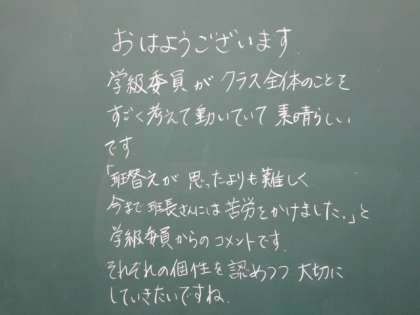 おはようございます.
学級委員が クラス全体のことを
すごく考えて動いていて 素晴らしい
です
「班替えが 思ったよりも難しく
今まで班長さんには苦労をかけました.」と
学級委員からのコメントです.
それぞれの個性を認めつつ 大切に
していきたいですね.